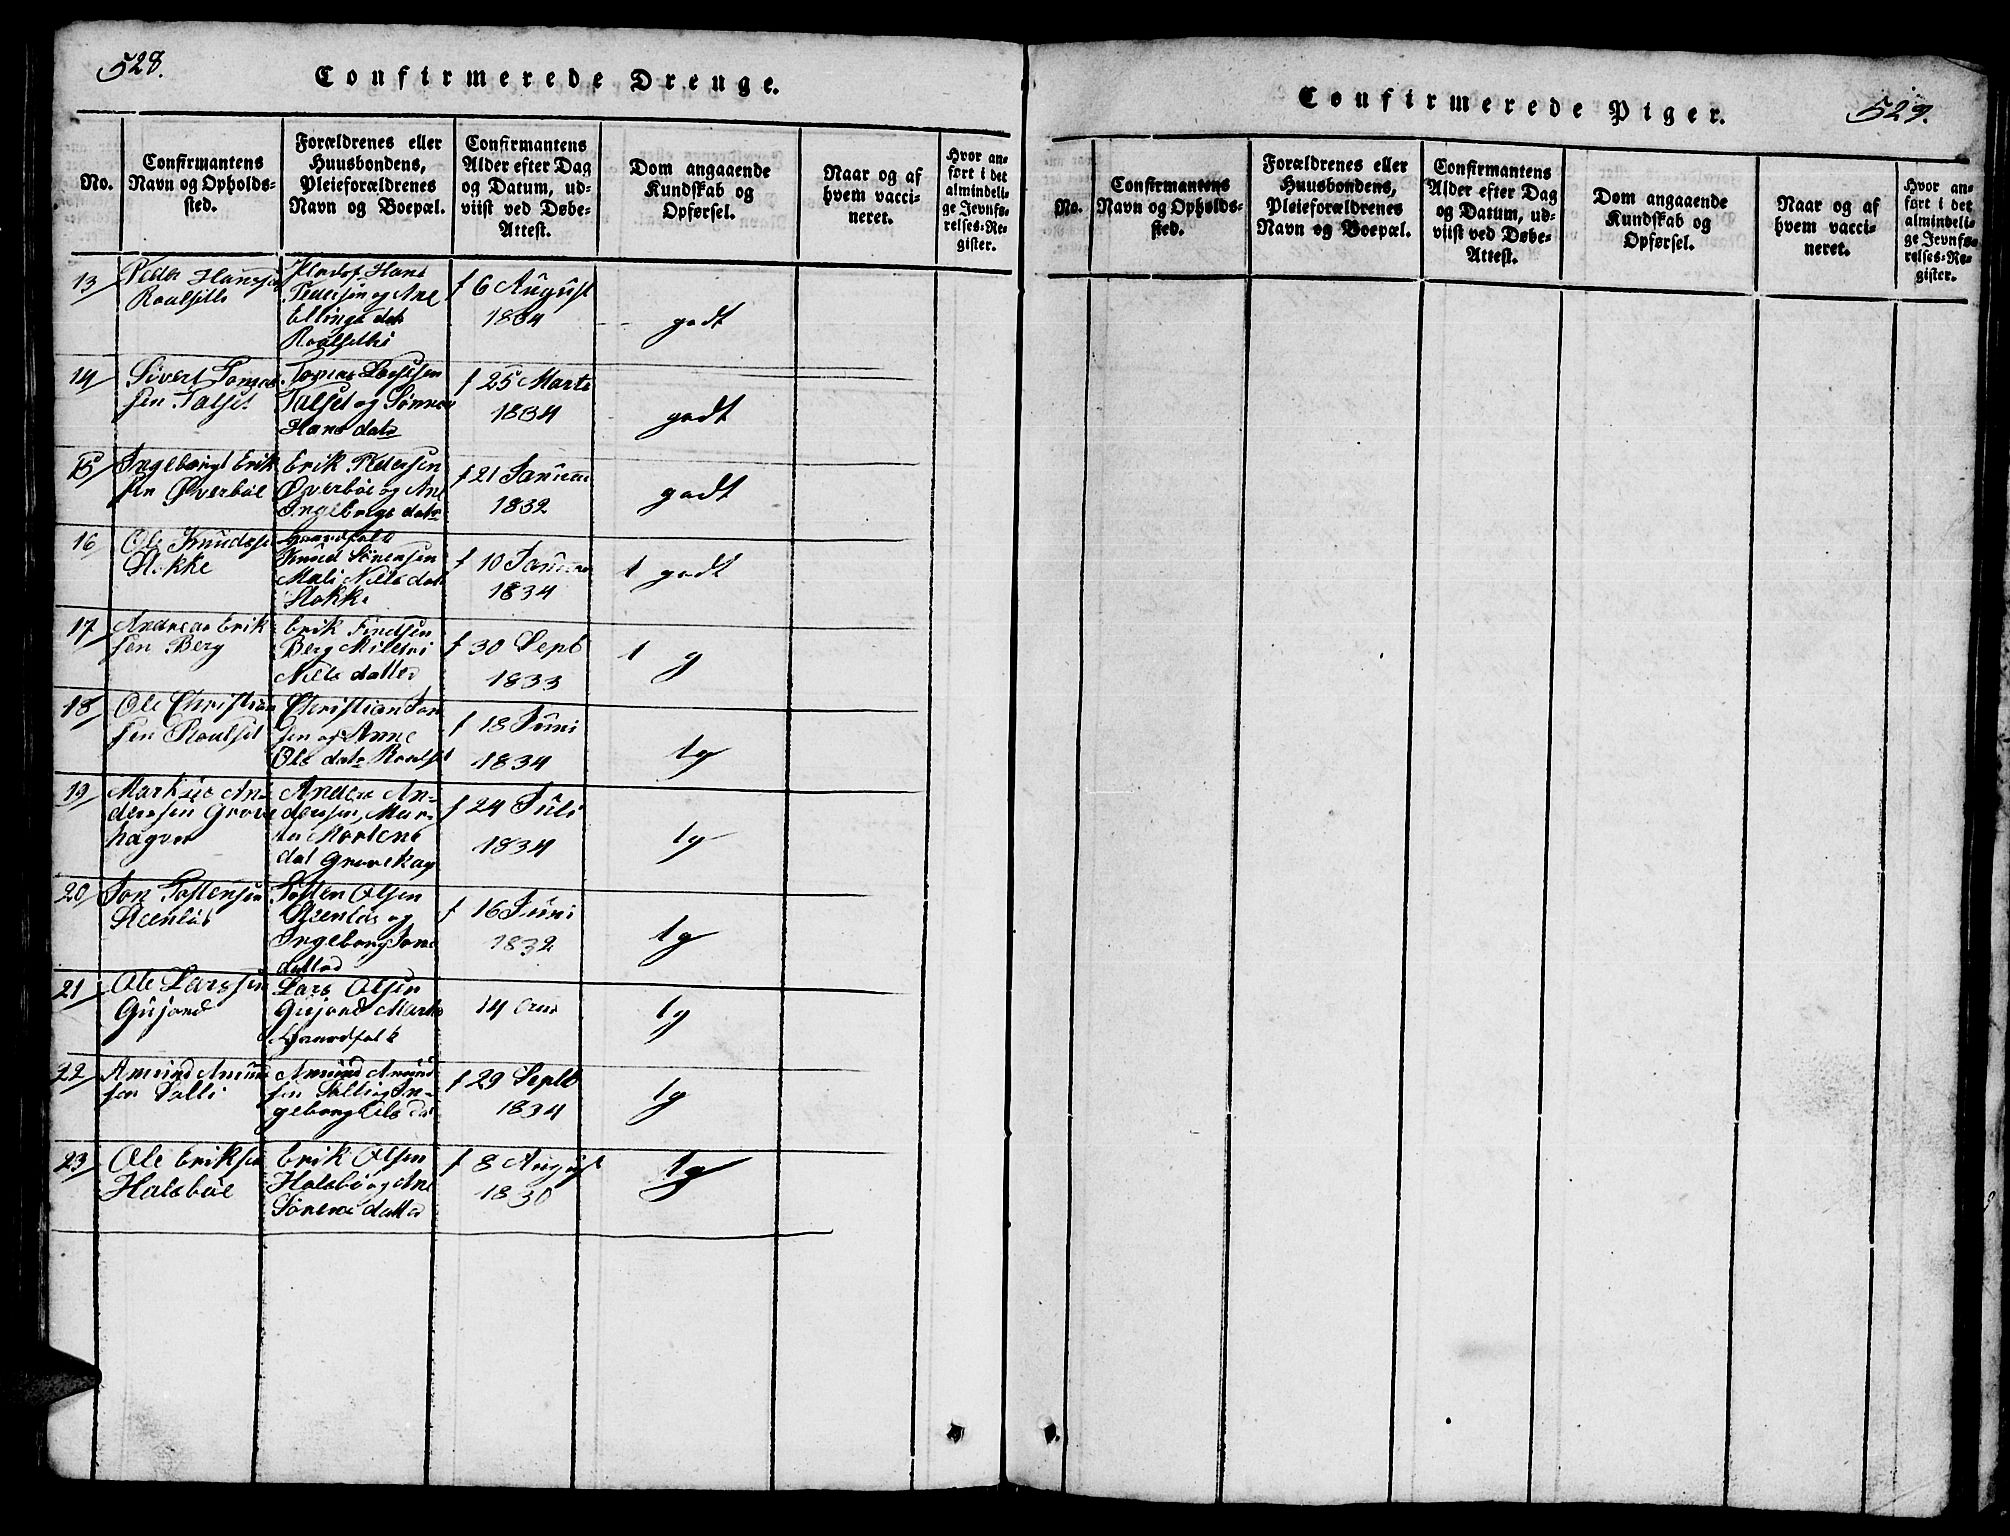 528.
Confirmerede Drenge.
No.
Confirmantens
Navn og Opholds-
sted.
Forældrenes eller
Huusbondens,
Pleieforældrenes
Navn og Boepæl.
Confirmantens
Alder efter Dag
og Datum, ud-
viist ved Døbe-
Attest.
Dom angaaende
Kundskab og
Opførsel.
Naar og af
hvem vacci-
neret.
Hvor an-
ført i det
almindeli-
ge Jevnfø-
relses-Re-
gister.
13
Peder Hansen
Roalseth
Hans
Pedersen og Ane
Ellings dat
f 6 August
1834
godt
14
Sivert Tomas
sen Talset
Tomas
Talset og
Hans dat
f 25 Marts
1834
godt
15
Ingebrigt Erik
sen Øverbøe
Erik Pedersen
Øverbøe og Ane
Ingebrigt datr
f 21 Januar
1832
godt
16
Ole Knudsen
Stokke
Knud Sørensen
Mali Nils dat
Stokke
f 10 Januar
1834
1 godt
17
Andreas Erik
sen Berg
Erik Findsen
Berg
Nils datter
f 30 Septb
1833
1 g
18
Ole Christian
sen Roalset
Christian
sen og Anne
Ols datr Roalset
f 18 Juni
1834
1g
19
An-
dersen Grove
hagen
Anders An-
dersen, Mar-
Mortens
dat Grovehag
f 24 Juli
1834
1g
20
Jon Tostensen
Steenløs
Tosten Olsen
Steenløs og
Ingeborg Jons
datter
f 16 Juni
1832
1g
21
Ole Larssen
Gujord
Lars Olsen
Gujord
14
1g
22
Amund Amund
sen Solli
Amund Amund
sen Solli og In-
geborg Ols dat
f 29 Septb
1834
1g
23
Ole Eriksen
Halsbøe
Erik Olsen
Halsbø og Ane
Sørens datter
f 8 August
1830
1g
Confirmerede Piger.
529.
No.
Confirmantens
Navn og Opholds-
sted.
Forældrenes eller
Huusbondens,
Pleieforældrenes
Navn og Boepæl.
Confirmantens
Alder efter Dag
og Datum, ud-
viist ved Døbe-
Attest.
Dom angaaende
Kundskab og
Opførsel.
Naar og af
hvem vacci-
neret.
Hvor an-
ført i det
almindeli-
ge Jevnfø-
relses-Re-
gister.